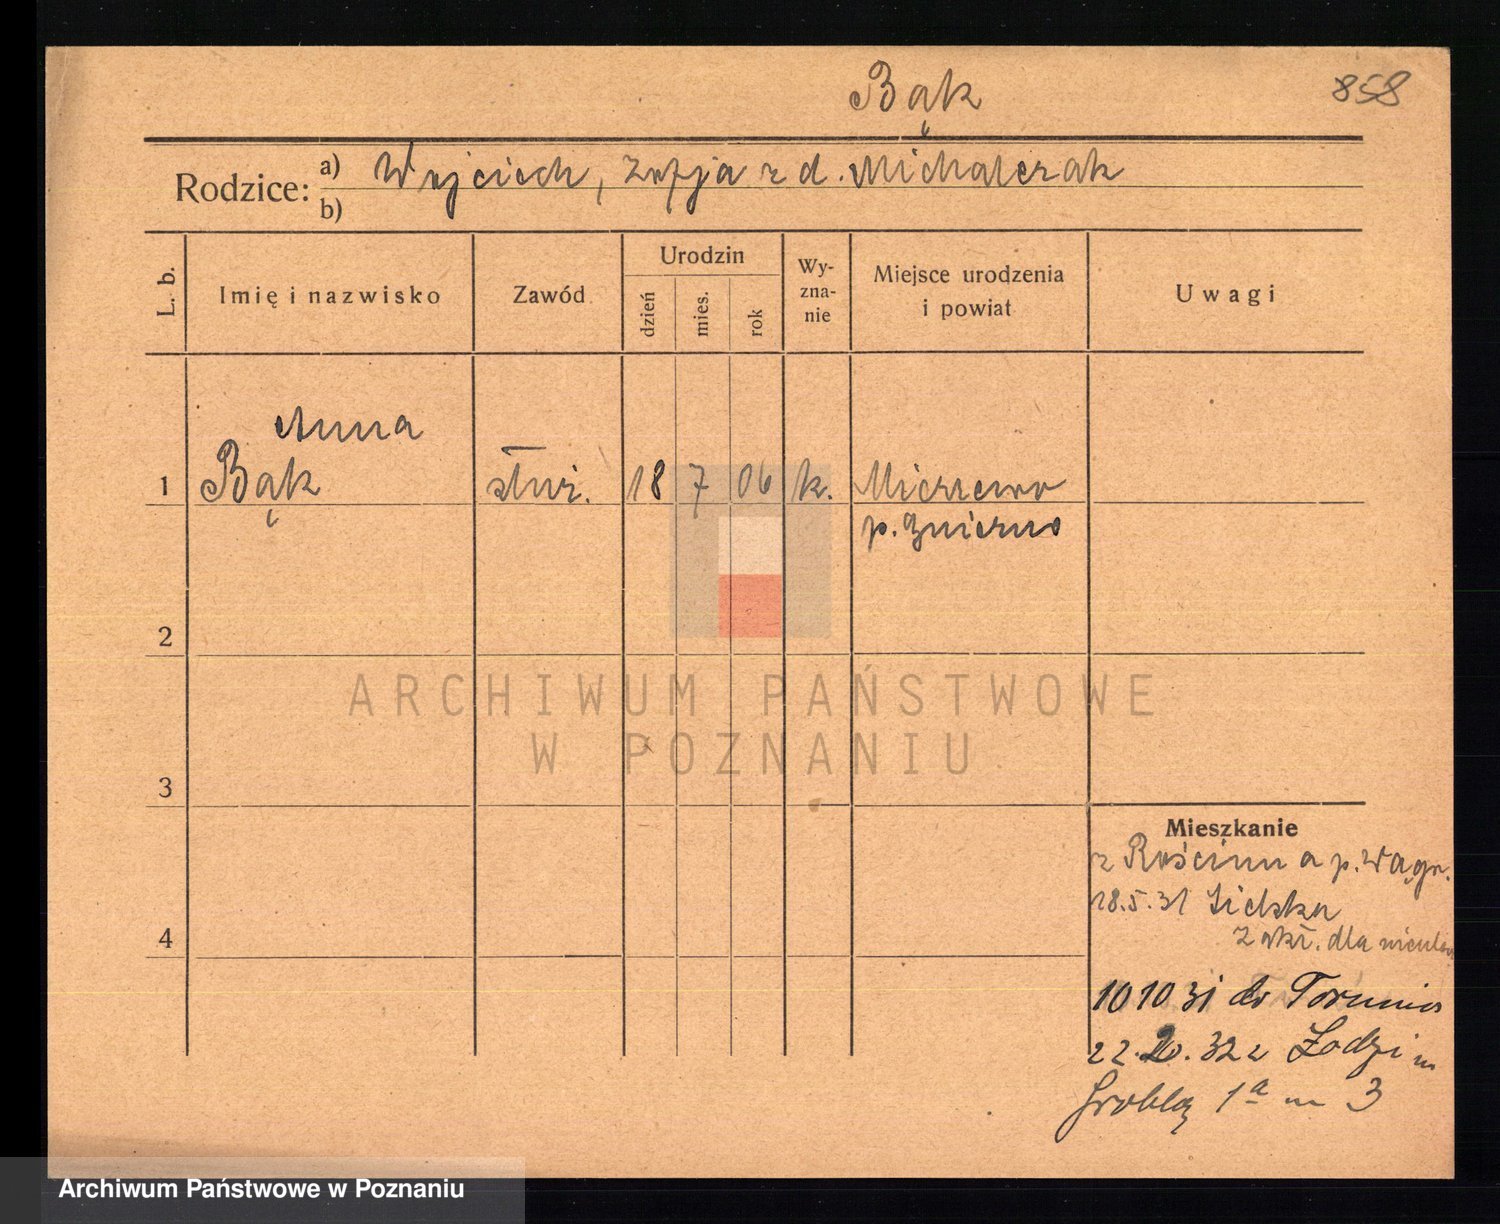 Bąk
858
Rodzice: a) Wojciech, Zofja z d. Michalczak
b)
L. b.
Imię i nazwisko
Zawód
Urodzin
dzień
mies.
rok
Wy-
zna-
nie
Miejsce urodzenia
i powiat
Uwagi
Anna
1 Bąk służ. 18 7 06 k. Mierzewo
p. Gniezno
2
3
4
Mieszkanie
z Rościnna p. Wągr.
18.5.31
Zakł. dla
10 10 31 do Torunia
22. 2. 32 z Łodzi
Grobla 1a m 3
ARCHIWUM PAŃSTWOWE
W POZNANIU
Archiwum Państwowe w Poznaniu